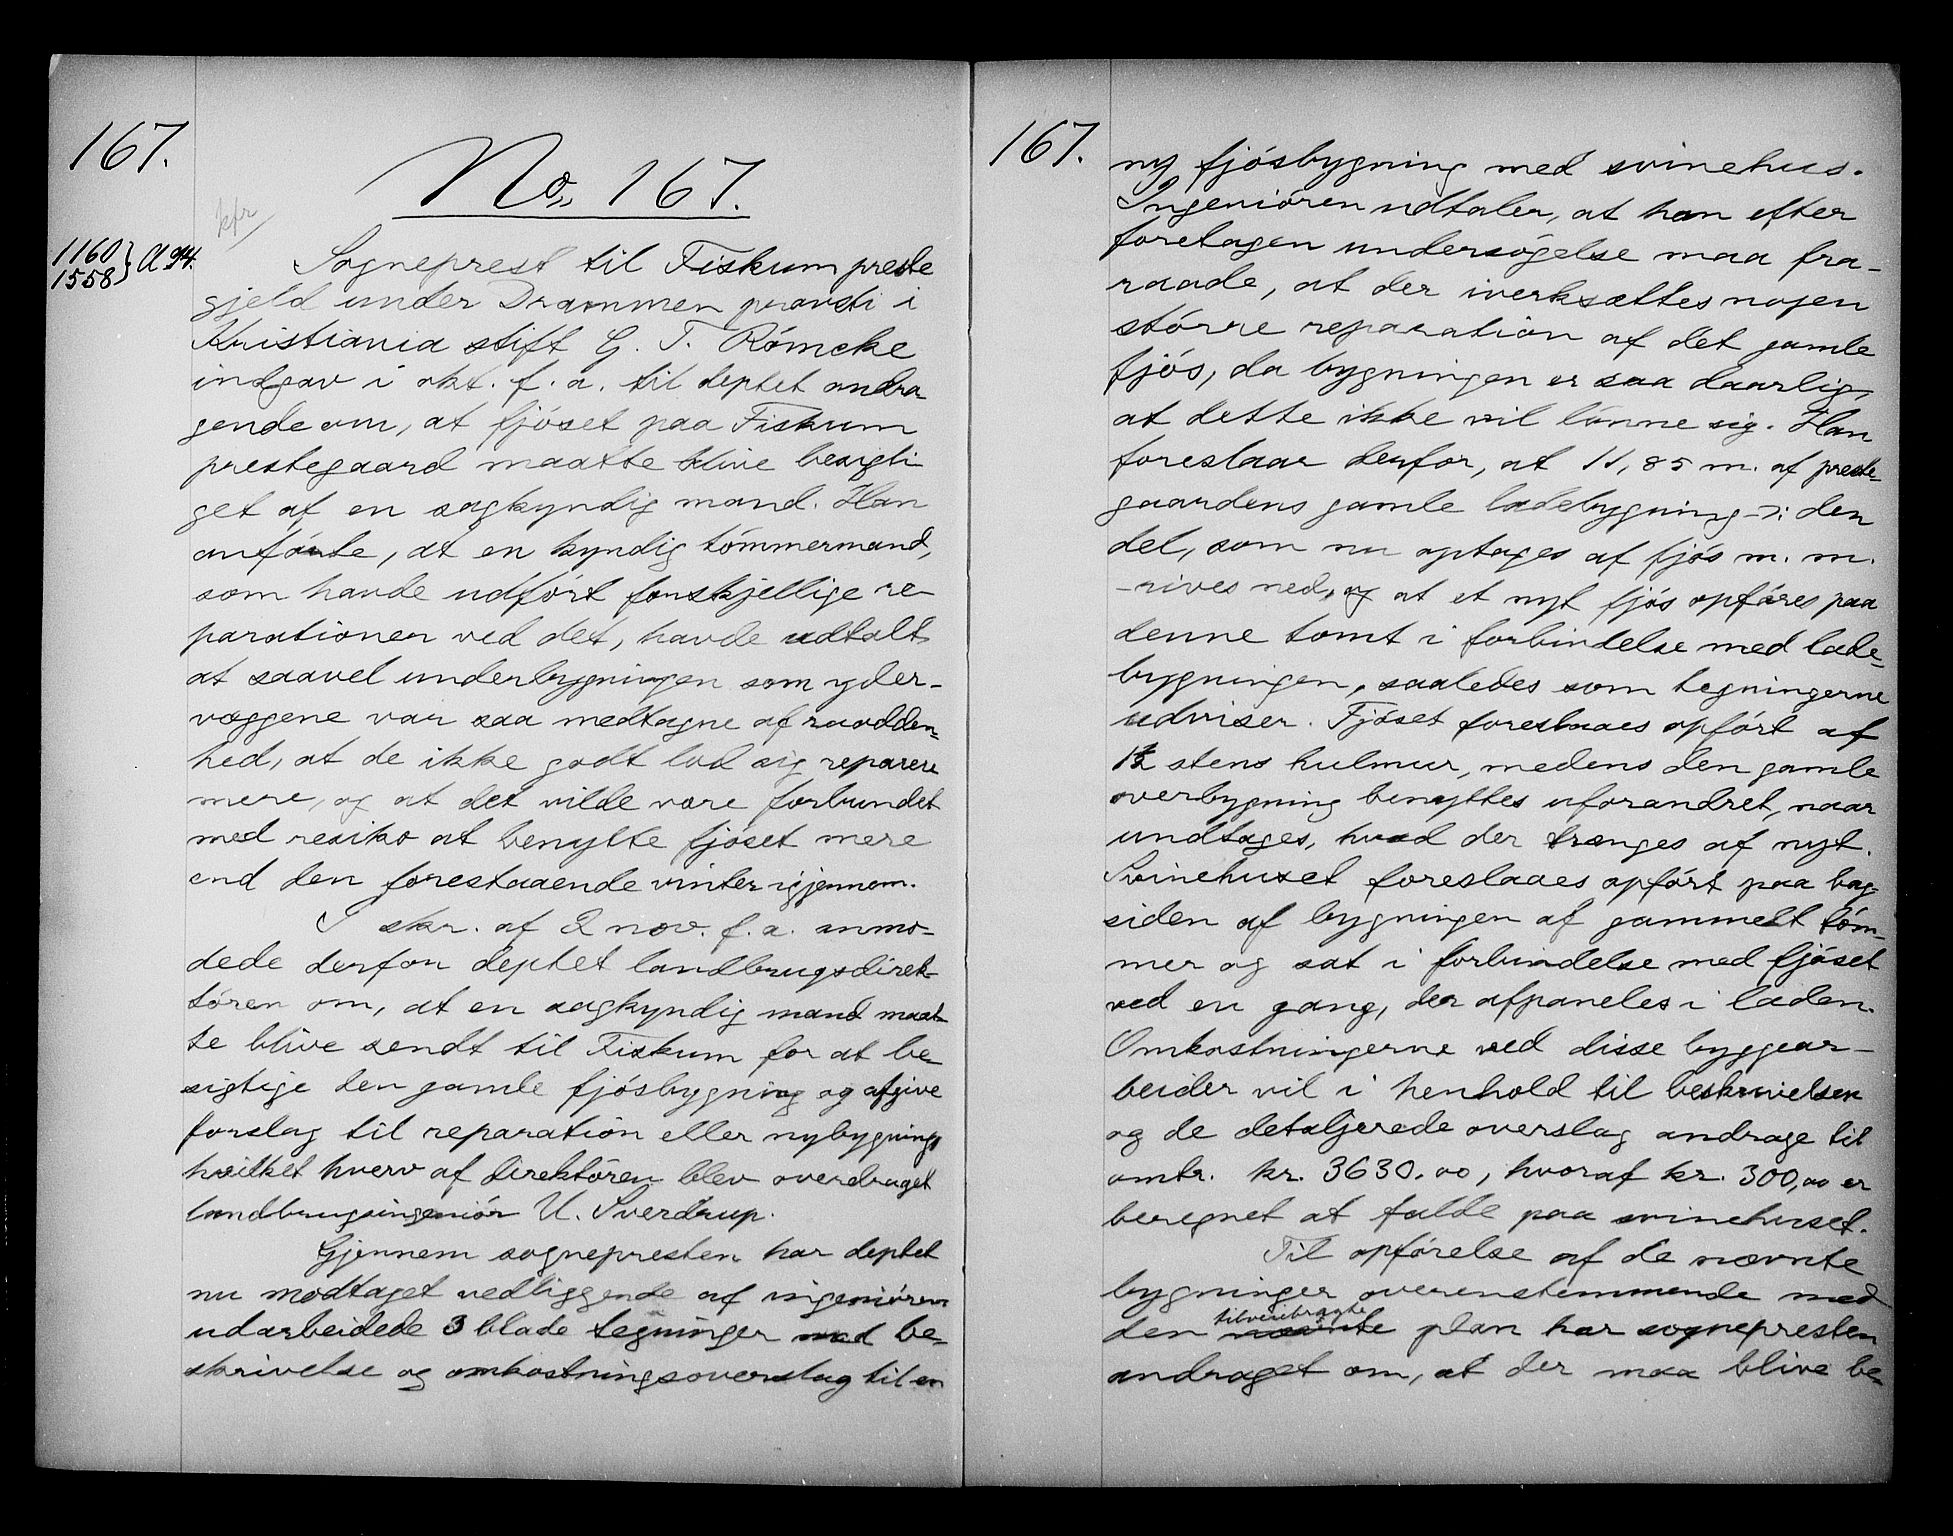 167.
No. 167.
kfr
1160 } A 94.
1558
Sogneprest til Fiskum preste
gjeld under Drammen provsti i
Kristiania stift G. T. Römcke
indgav i okt. f. a. til deptet andra-
gende om, at fjöset paa Fiskum
prestegaard maatte blive besigti
get af en sagkyndig mand. Han
anförte, at en kyndig tömmermand,
som havde udfört forskjellige re-
parationer ved det, havde udtalt
at saavel underbygningen som yder-
væggene var saa medtagne af raadden-
hed, at de ikke godt lod sig reparere
mere, og at det vilde være forbundet
med resiko at benytte fjöset mere
end den forestaaende vinter igjennem.
I skr. af 2 nov. f. a. anmo-
dede derfor deptet landbrugsdirek-
tören om, at en sagkyndig mand maat-
te blive sendt til Fiskum for at be-
sigtige den gamle fjösbygning og afgive
forslag til reparation eller nybygning,
hvilket hverv af direktören blev overdraget
landbrugsingeniör U. Sverdrup.
Gjennem sognepresten har deptet
nu modtaget vedliggende af ingeniören
udarbeidede 3 blade tegninger med be-
skrivelse og omkostningsoverslag til en
167.
ny fjösbygning med svinehus.
Ingeniören udtaler, at han efter
foretagen undersögelse maa fra-
raade, at der iverksættes nogen
större reparation af det gamle
fjös, da bygningen er saa daarlig,
at dette ikke vil lönne sig. Han
foreslaar derfor, at 11,85 m. af preste-
gaardens gamle ladebygning -ɔ: den
del, som nu optages af fjös m. m.
- rives ned, og at et nyt fjös opföres paa
denne tomt i forbindelse med lade-
bygningen, saaledes som tegningerne
udviser. Fjöset foreslaaes opfört af
1½ stens hulmur, medens den gamle
overbygning benyttes uforandret, naar
undtages, hvad der trænges af nyt.
Svinehuset foreslaaes opfört paa bag-
siden af bygningen af gammelt töm-
mer og sat i forbindelse med fjöset
ved en gang, der afpaneles i laden.
Omkostningerne ved disse byggear-
beider vil i henhold til beskrivelsen
og de detaljerede overslag andrage til
omtr. kr. 3630.00, hvoraf kr. 300,00 er
beregnet at falde paa svinehuset.
Til opförelse af de nævnte
bygninger overenstemmende med
tilveiebragte
den nævnte plan har sognepresten
andraget om, at der maa blive be-